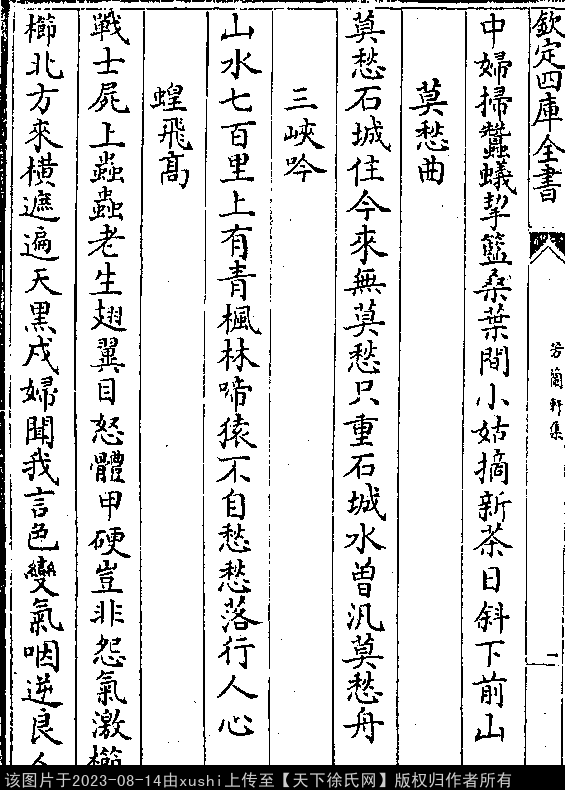 欽定四庫全書
芳蘭軒集
二
中婦掃蠶蟻挈籃桑葉間小姑摘新茶日斜下前山
莫愁曲
莫愁石城住今來無莫愁只重石城水曽汎莫愁舟
三峽吟
山水七百里上有青楓林啼猿不自愁愁落行人心
蝗飛髙
戰士屍上蟲蟲老生翅翼目怒體甲硬豈非怨氣激櫛
櫛北方來橫遮遍天黒戍婦聞我言色變氣咽逆良人
该图片于2023-08-14由xushi上传至【天下徐氏网】版权归作者所有